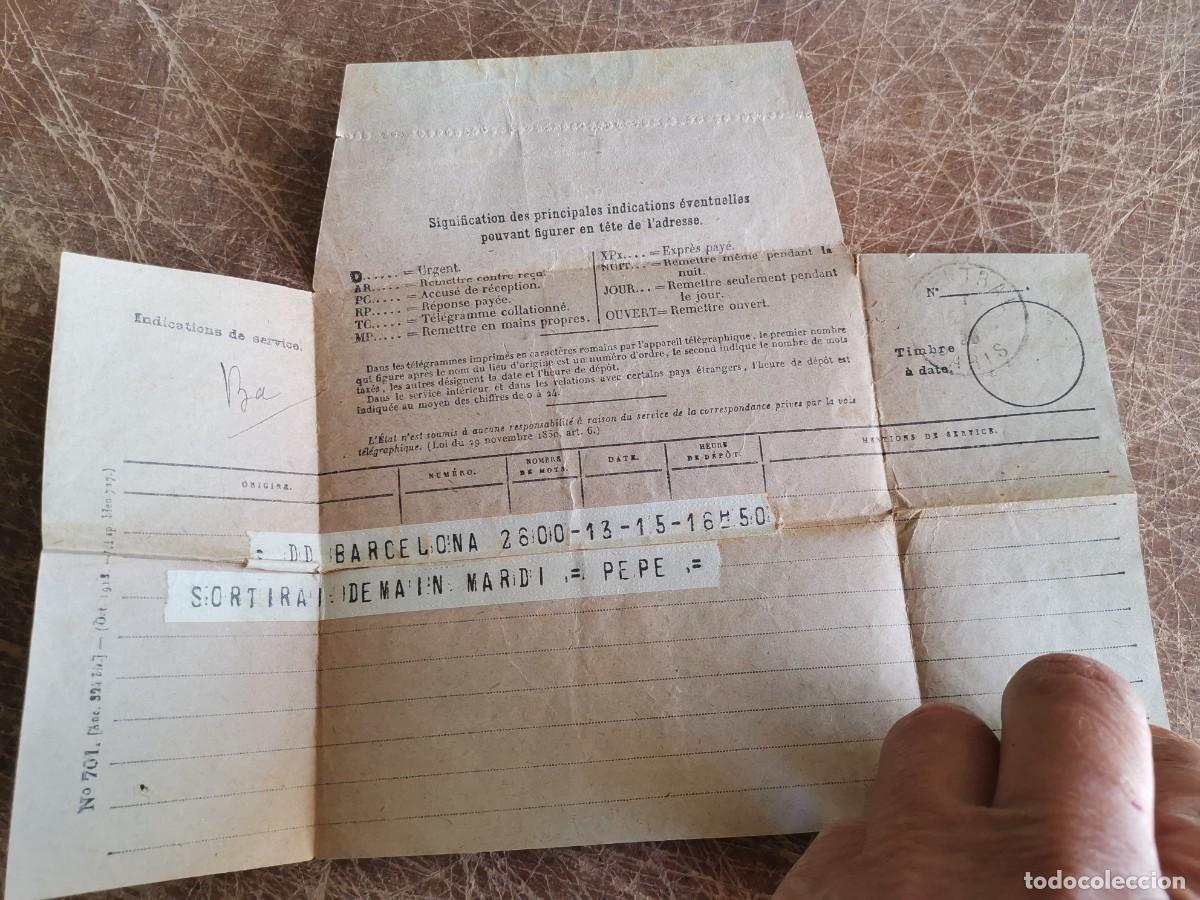 Signification des principales indications éventuelles
pouvant figurer en tête de l'adresse.
D...... = Urgent.
AR..... = Remettre contre reçu.
PC..... = Accusé de réception.
RP..... = Réponse payée.
TC..... = Télégramme collationné.
MP..... = Remettre en mains propres.
XPx.... = Exprès payé.
NUIT... = Remettre même pendant la
nuit.
JOUR... = Remettre seulement pendant
le jour.
OUVERT = Remettre ouvert.
Dans les télégrammes imprimés en caractères romains par l'appareil télégraphique, le premier nombre
qui figure après le nom du lieu d'origine est un numéro d'ordre, le second indique le nombre de mots
taxés, les autres désignent la date et l'heure de dépôt.
Dans le service intérieur et dans les relations avec certains pays étrangers, l'heure de dépôt est
indiquée au moyen des chiffres de 0 à 24.
L'État n'est soumis à aucune responsabilité à raison du service de la correspondance privée par la voie
télégraphique. (Loi du 29 novembre 1850, art. 6.)
Indications de service.
Ba
N°
Timbre
à date.
ORIGINE.
NUMÉRO.
NOMBRE
DE MOTS.
DATE.
HEURE
DE DÉPÔT.
MENTIONS DE SERVICE.
= DD BARCELONA 2600-13-15-16H50
SORTIRAI DEMAIN MARDI ,= PEPE ,=
N° 701. [Anc. 324 bis.] — (Oct. 1918
todocoleccion